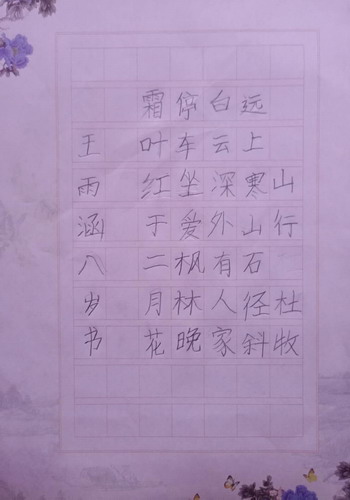 山行 杜牧
远上寒山石径斜
白云深外有人家
停车坐爱枫林晚
霜叶红于二月花
王雨涵八岁书